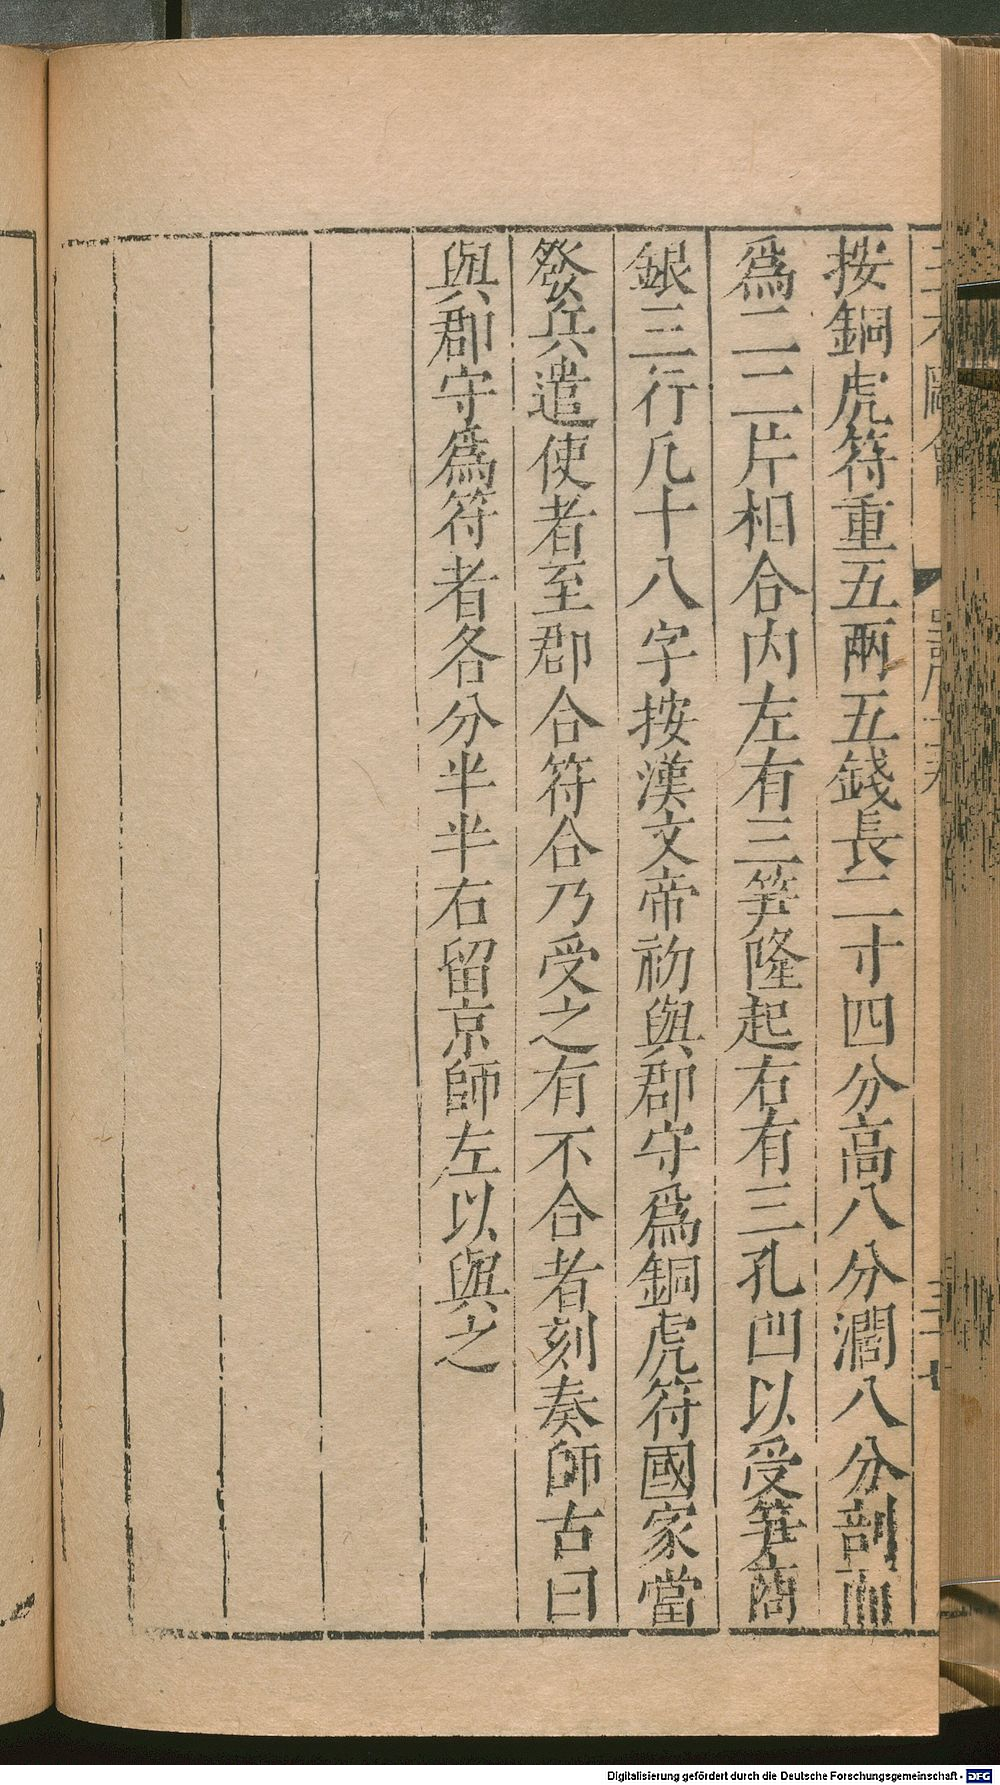 按銅虎符重五兩五錢長二寸四分高八分濶八分剖而
爲二二片相合内左有三笋隆起右有三孔凹以受笋商
銀三行凡十八字按漢文帝初與郡守爲銅虎符國家當
發兵遣使者至郡合符合乃受之有不合者刻奏師古曰
與郡守爲符者各分半半右留京師左以與之
Digitalisierung gefördert durch die Deutsche Forschungsgemeinschaft - DFG